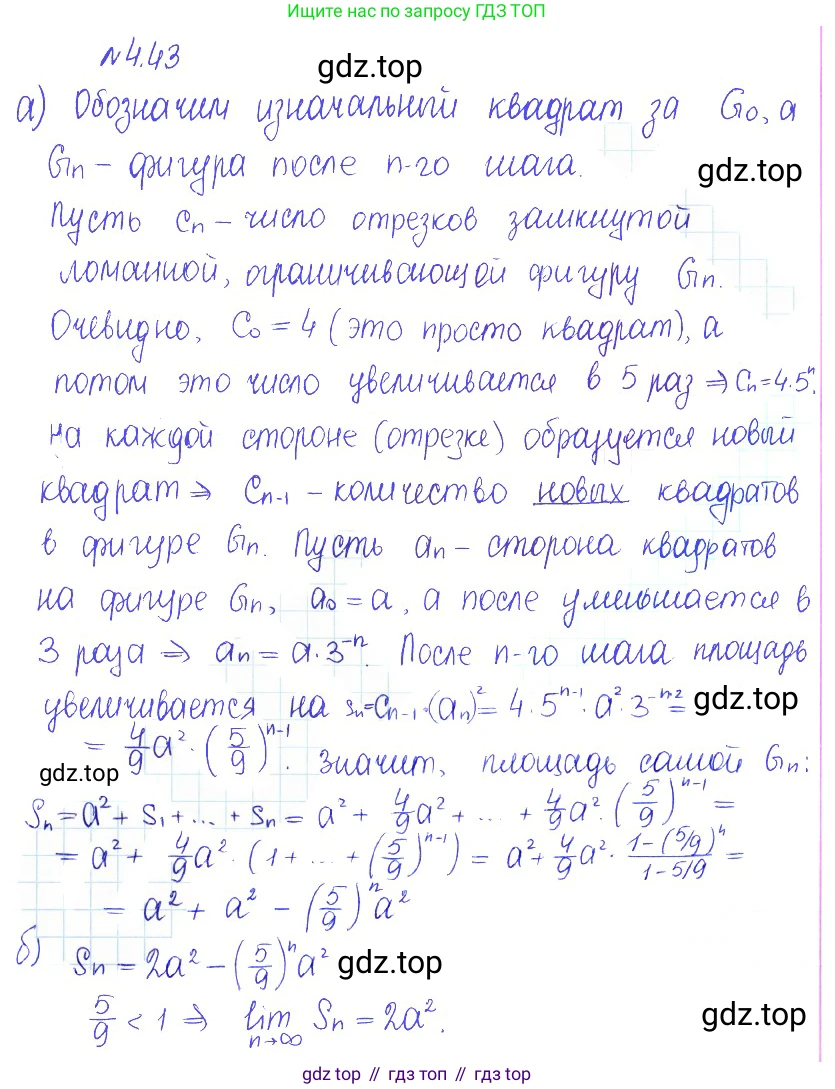 Ищите нас по запросу ГДЗ ТОП
№4.43
gdz.top
а) Обозначим изначальный квадрат за G₀, а
Gₙ – фигура после n-го шага.
gdz.top
Пусть Cₙ – число отрезков замкнутой
ломанной, ограничивающей фигуру Gₙ.
Очевидно, C₀ = 4 (это просто квадрат), а
потом это число увеличивается в 5 раз ⇒ Cₙ=4·5ⁿ.
На каждой стороне (отрезке) образуется новый
квадрат ⇒ Cₙ₋₁ – количество новых квадратов
в фигуре Gₙ. Пусть aₙ – сторона квадратов
на фигуре Gₙ, a₀ = a, а после уменьшается в
3 раза ⇒ aₙ = a·3⁻ⁿ. После n-го шага площадь
увеличивается на sₙ=Cₙ₋₁·(aₙ)² = 4·5ⁿ⁻¹·a²·3⁻ⁿ·² =
gdz.top
= 4/9 a²·(5/9)ⁿ⁻¹. Значит, площадь самой Gₙ:
gdz.top
Sₙ = a² + S₁ + ... + Sₙ = a² + 4/9 a² + ... + 4/9 a²·(5/9)ⁿ⁻¹ =
= a² + 4/9 a²·(1 + ... + (5/9)ⁿ⁻¹) = a² + 4/9 a²·(1-(5/9)ⁿ)/(1-5/9) =
= a² + a² - (5/9)ⁿ a²
б) Sₙ = 2a² - (5/9)ⁿ a²
gdz.top
5/9 < 1 ⇒ lim n→∞ Sₙ = 2a².
gdz.top
gdz.top // гдз топ // gdz.top